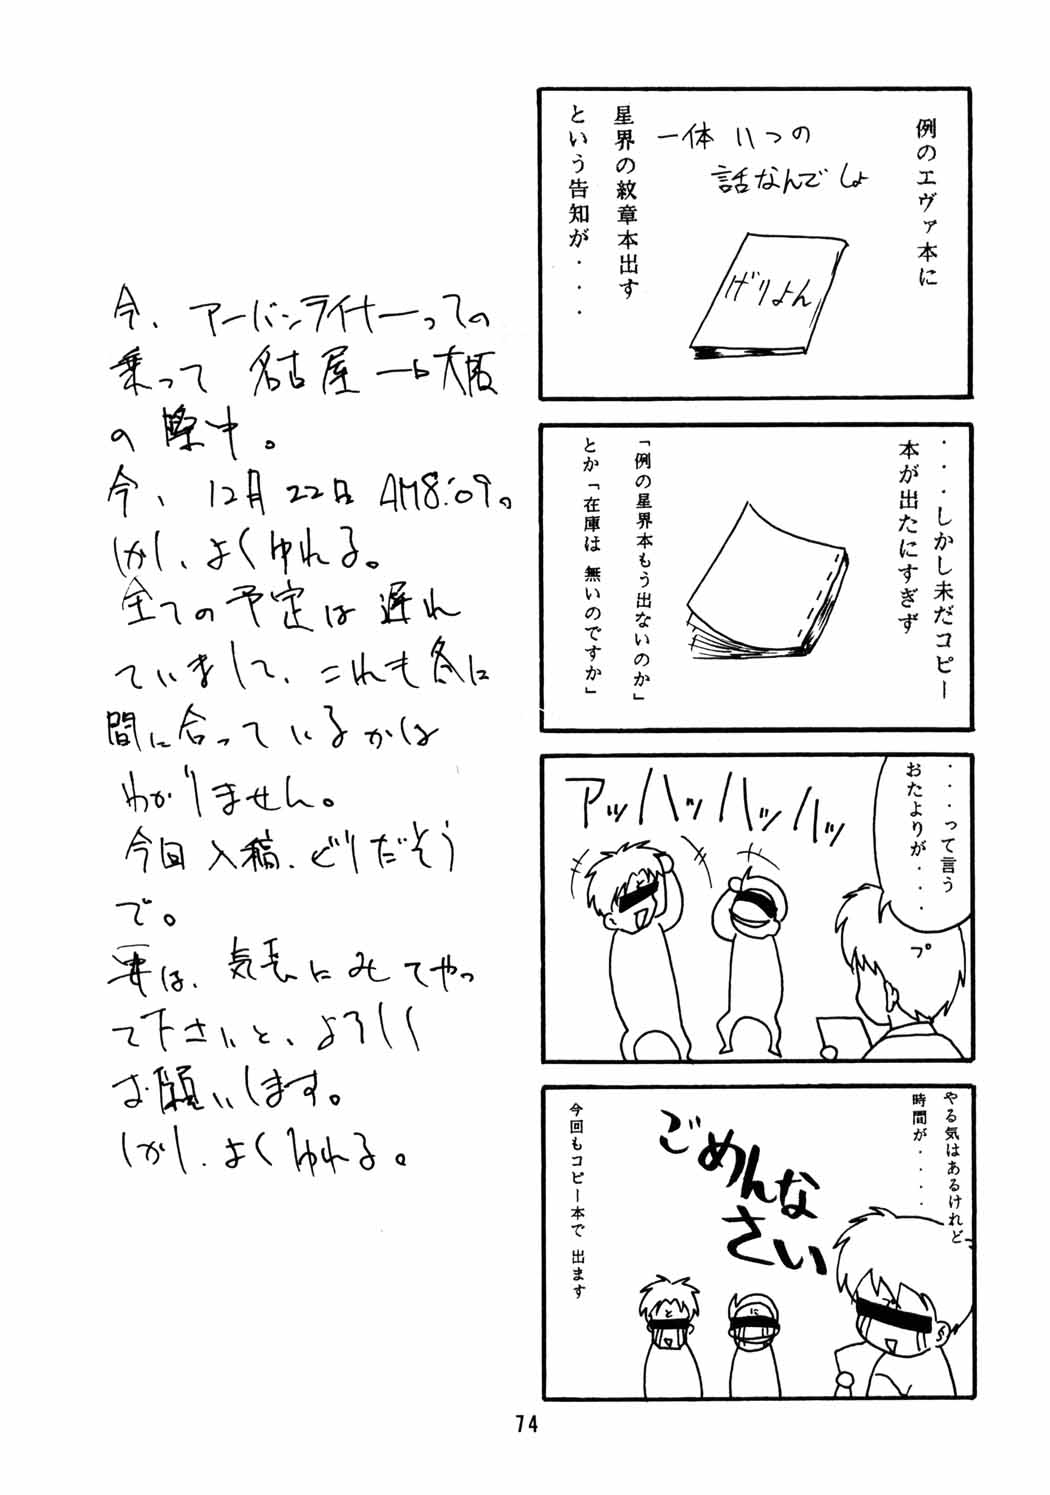 例のエヴァ本に
一体いつの
話なんでしょ
げりよん
星界の紋章本出す
という告知が・・・・
・・・しかし未だコピー
本が出たにすぎず
「例の星界本もう出ないのか」
とか「在庫は 無いのですか」
・・・って言う
おたよりが・・・・
プ
アッハッハッハッ
と
やる気はあるけれど
時間が・・・・・
プ
ごめんな
さい
と
に
今回もコピー本で 出ます
今、アーバンライナーっての
乗って 名古屋→大阪
の際中。
今、12月22日AM8:09。
しかし、よくゆれる。
全ての予定は遅れ
ていまして、これも冬に
間に合っているかは
わかりません。
今回入稿、どりだそう
で。
要は、気長にみてやっ
て下さいと、よろしく
お願いします。
しかし、よくゆれる。
74